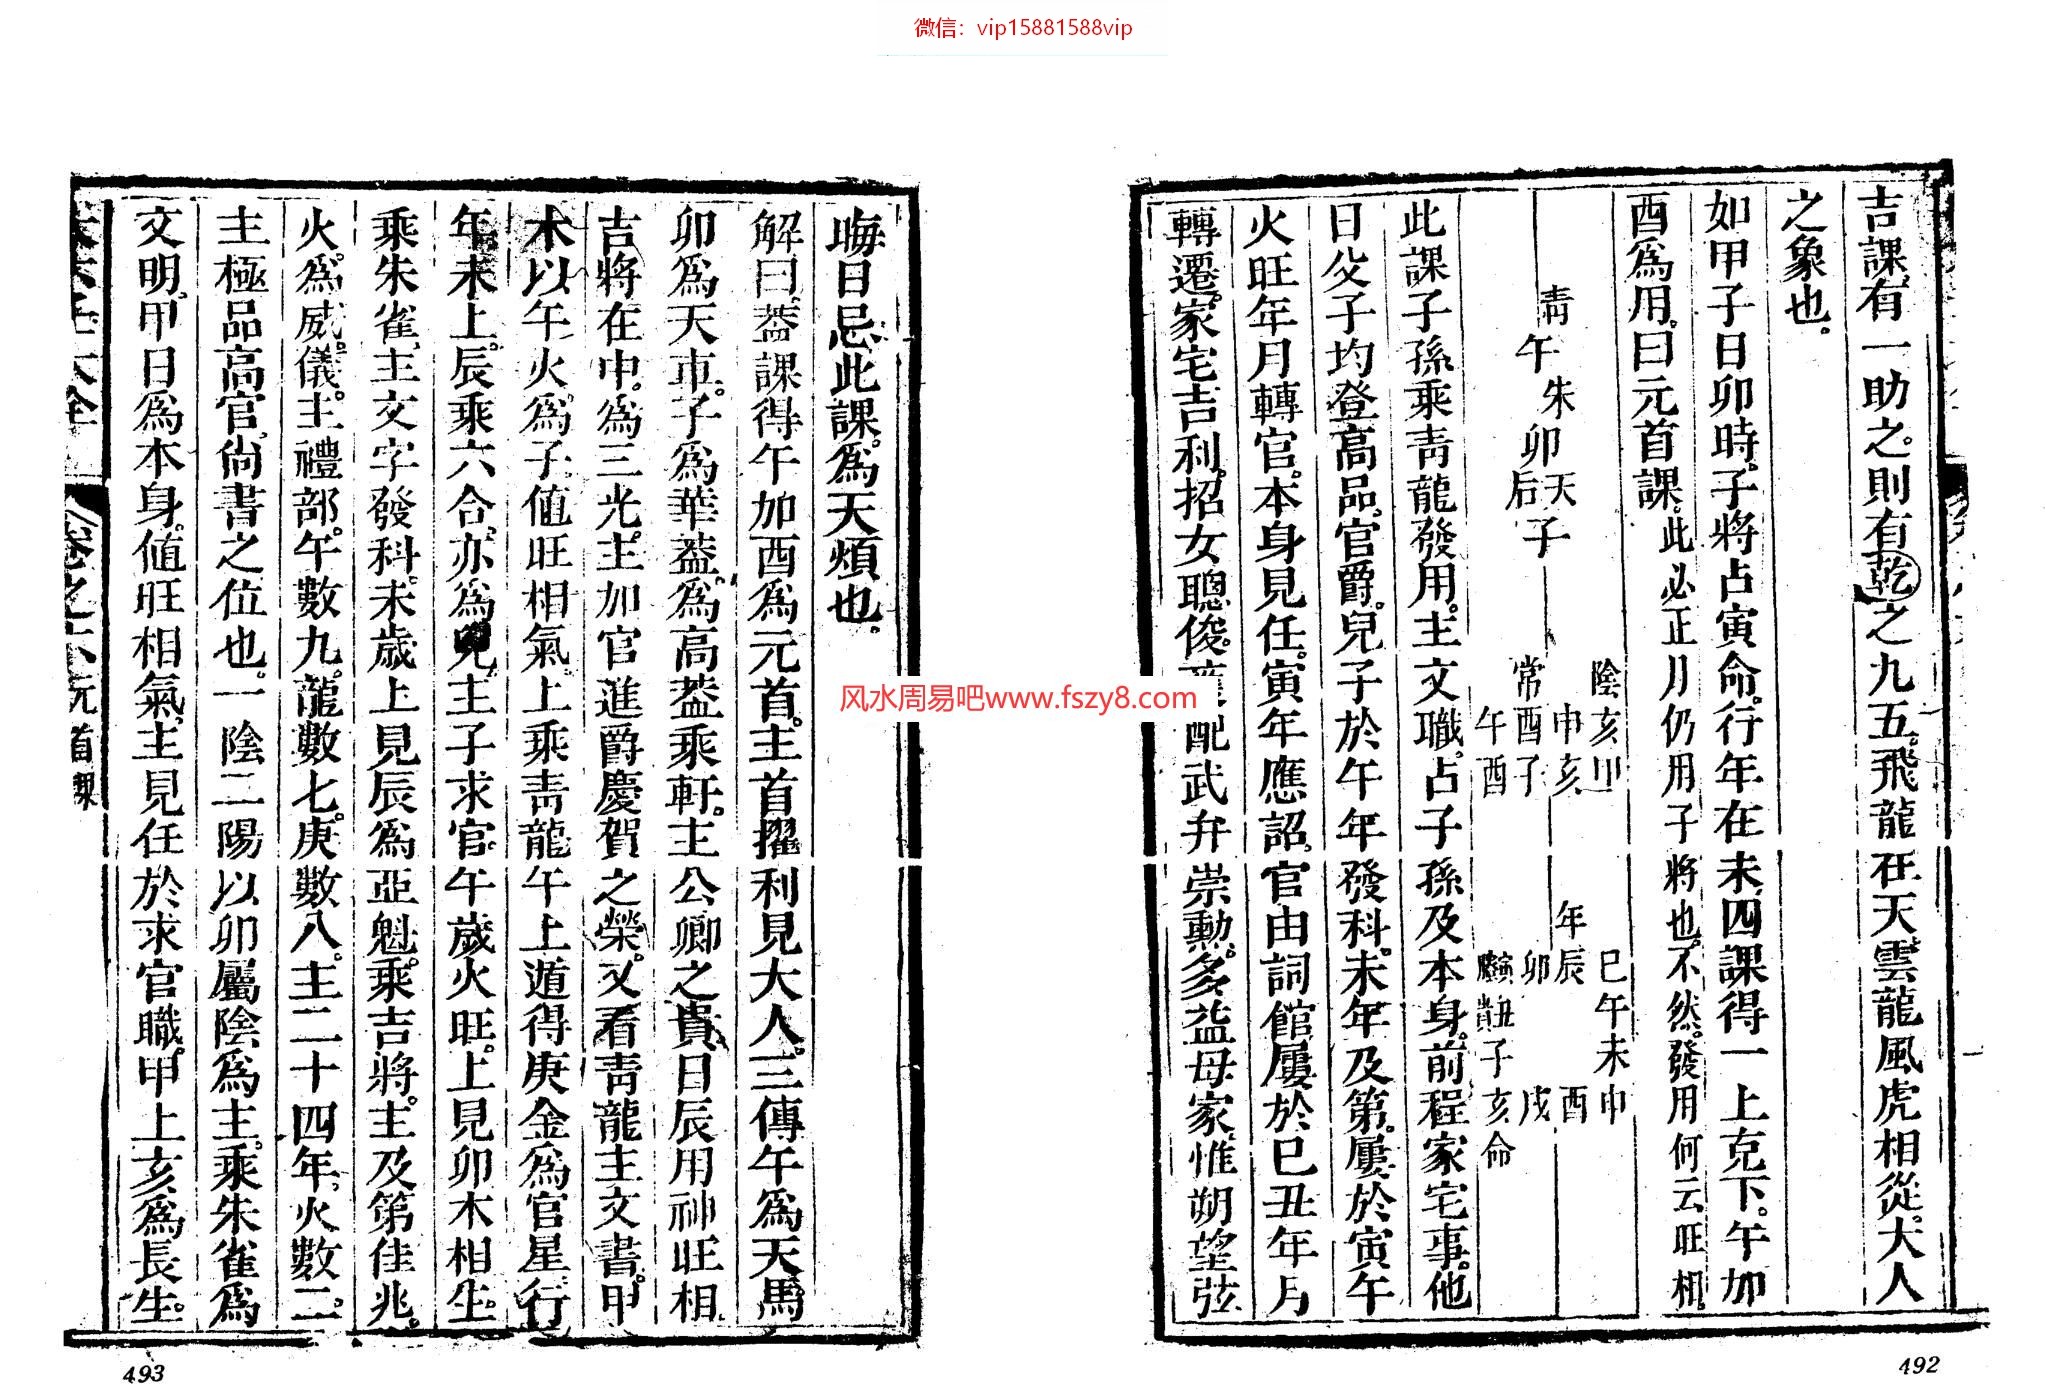 微信：vip15881588vip
吉課有一助之則有乾之九五飛龍在天雲龍風虎相從大人
之象也。
如甲子日卯時子將占寅命行年在未四課得一上克下午加
酉為用曰元首課此必正月仍用子將也不然發用何云旺相
青午 朱卯 天后子
陰亥甲 申亥 常酉子 午酉
年 巳午未申 辰 酉 卯 戌 寅丑子亥 貴 命
此課子孫乘青龍發用主文職占子孫及本身前程家宅事他
日父子均登高品官爵兒子於午年發科未年及第屢於寅午
火旺年月轉官本身見任寅年應詔官由詞館屢於巳丑年月
轉遷家宅吉利招女聰俊配武弁崇勳多益母家惟朔望弦
晦日忌此課為天煩也。
解曰葢課得午加酉為元首主首擢利見大人三傳午為天馬
卯為天車子為華葢為高葢乘軒主公卿之貴日辰用神旺相
吉將在中為三光主加官進爵慶賀之榮又看青龍主文書甲
木以午火為子値旺相氣上乘青龍午上遁得庚金為官星行
年未上辰乘六合亦為主子求官午歲火旺上見卯木相生
乘朱雀主文字發科未歲上見辰為亞魁乘吉將主及第佳兆
火為威儀主禮部午數九龍數七庚數八主二十四年火數二
主極品高官尙書之位也一陰二陽以卯屬陰為主乘朱雀為
文明甲日為本身値旺相氣主見任於求官職甲上亥為長生
大全 卷之六 元首課
风水周易吧www.fszy8.com
492
493